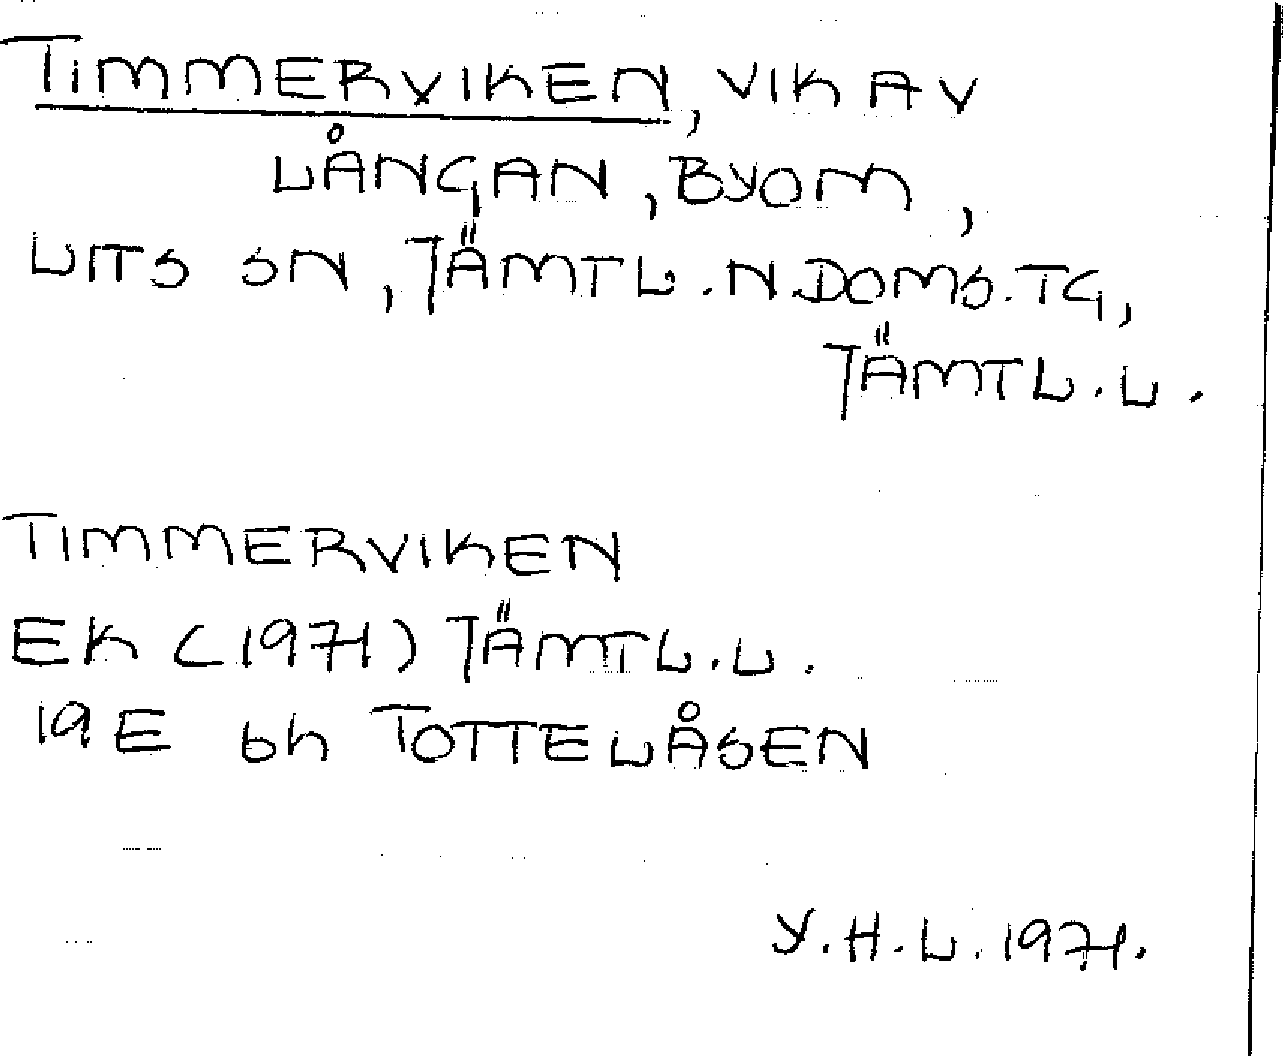 TIMMERVIKEN, VIK AV
LÅNGAN, BYOM,
LITS SN, JÄMTL. N. DOMS. TG,
JÄMTL. L.
TIMMERVIKEN
EK (1971) JÄMTL. L.
19 E 6h TOTTELÅSEN
Y. H. L. 1971.